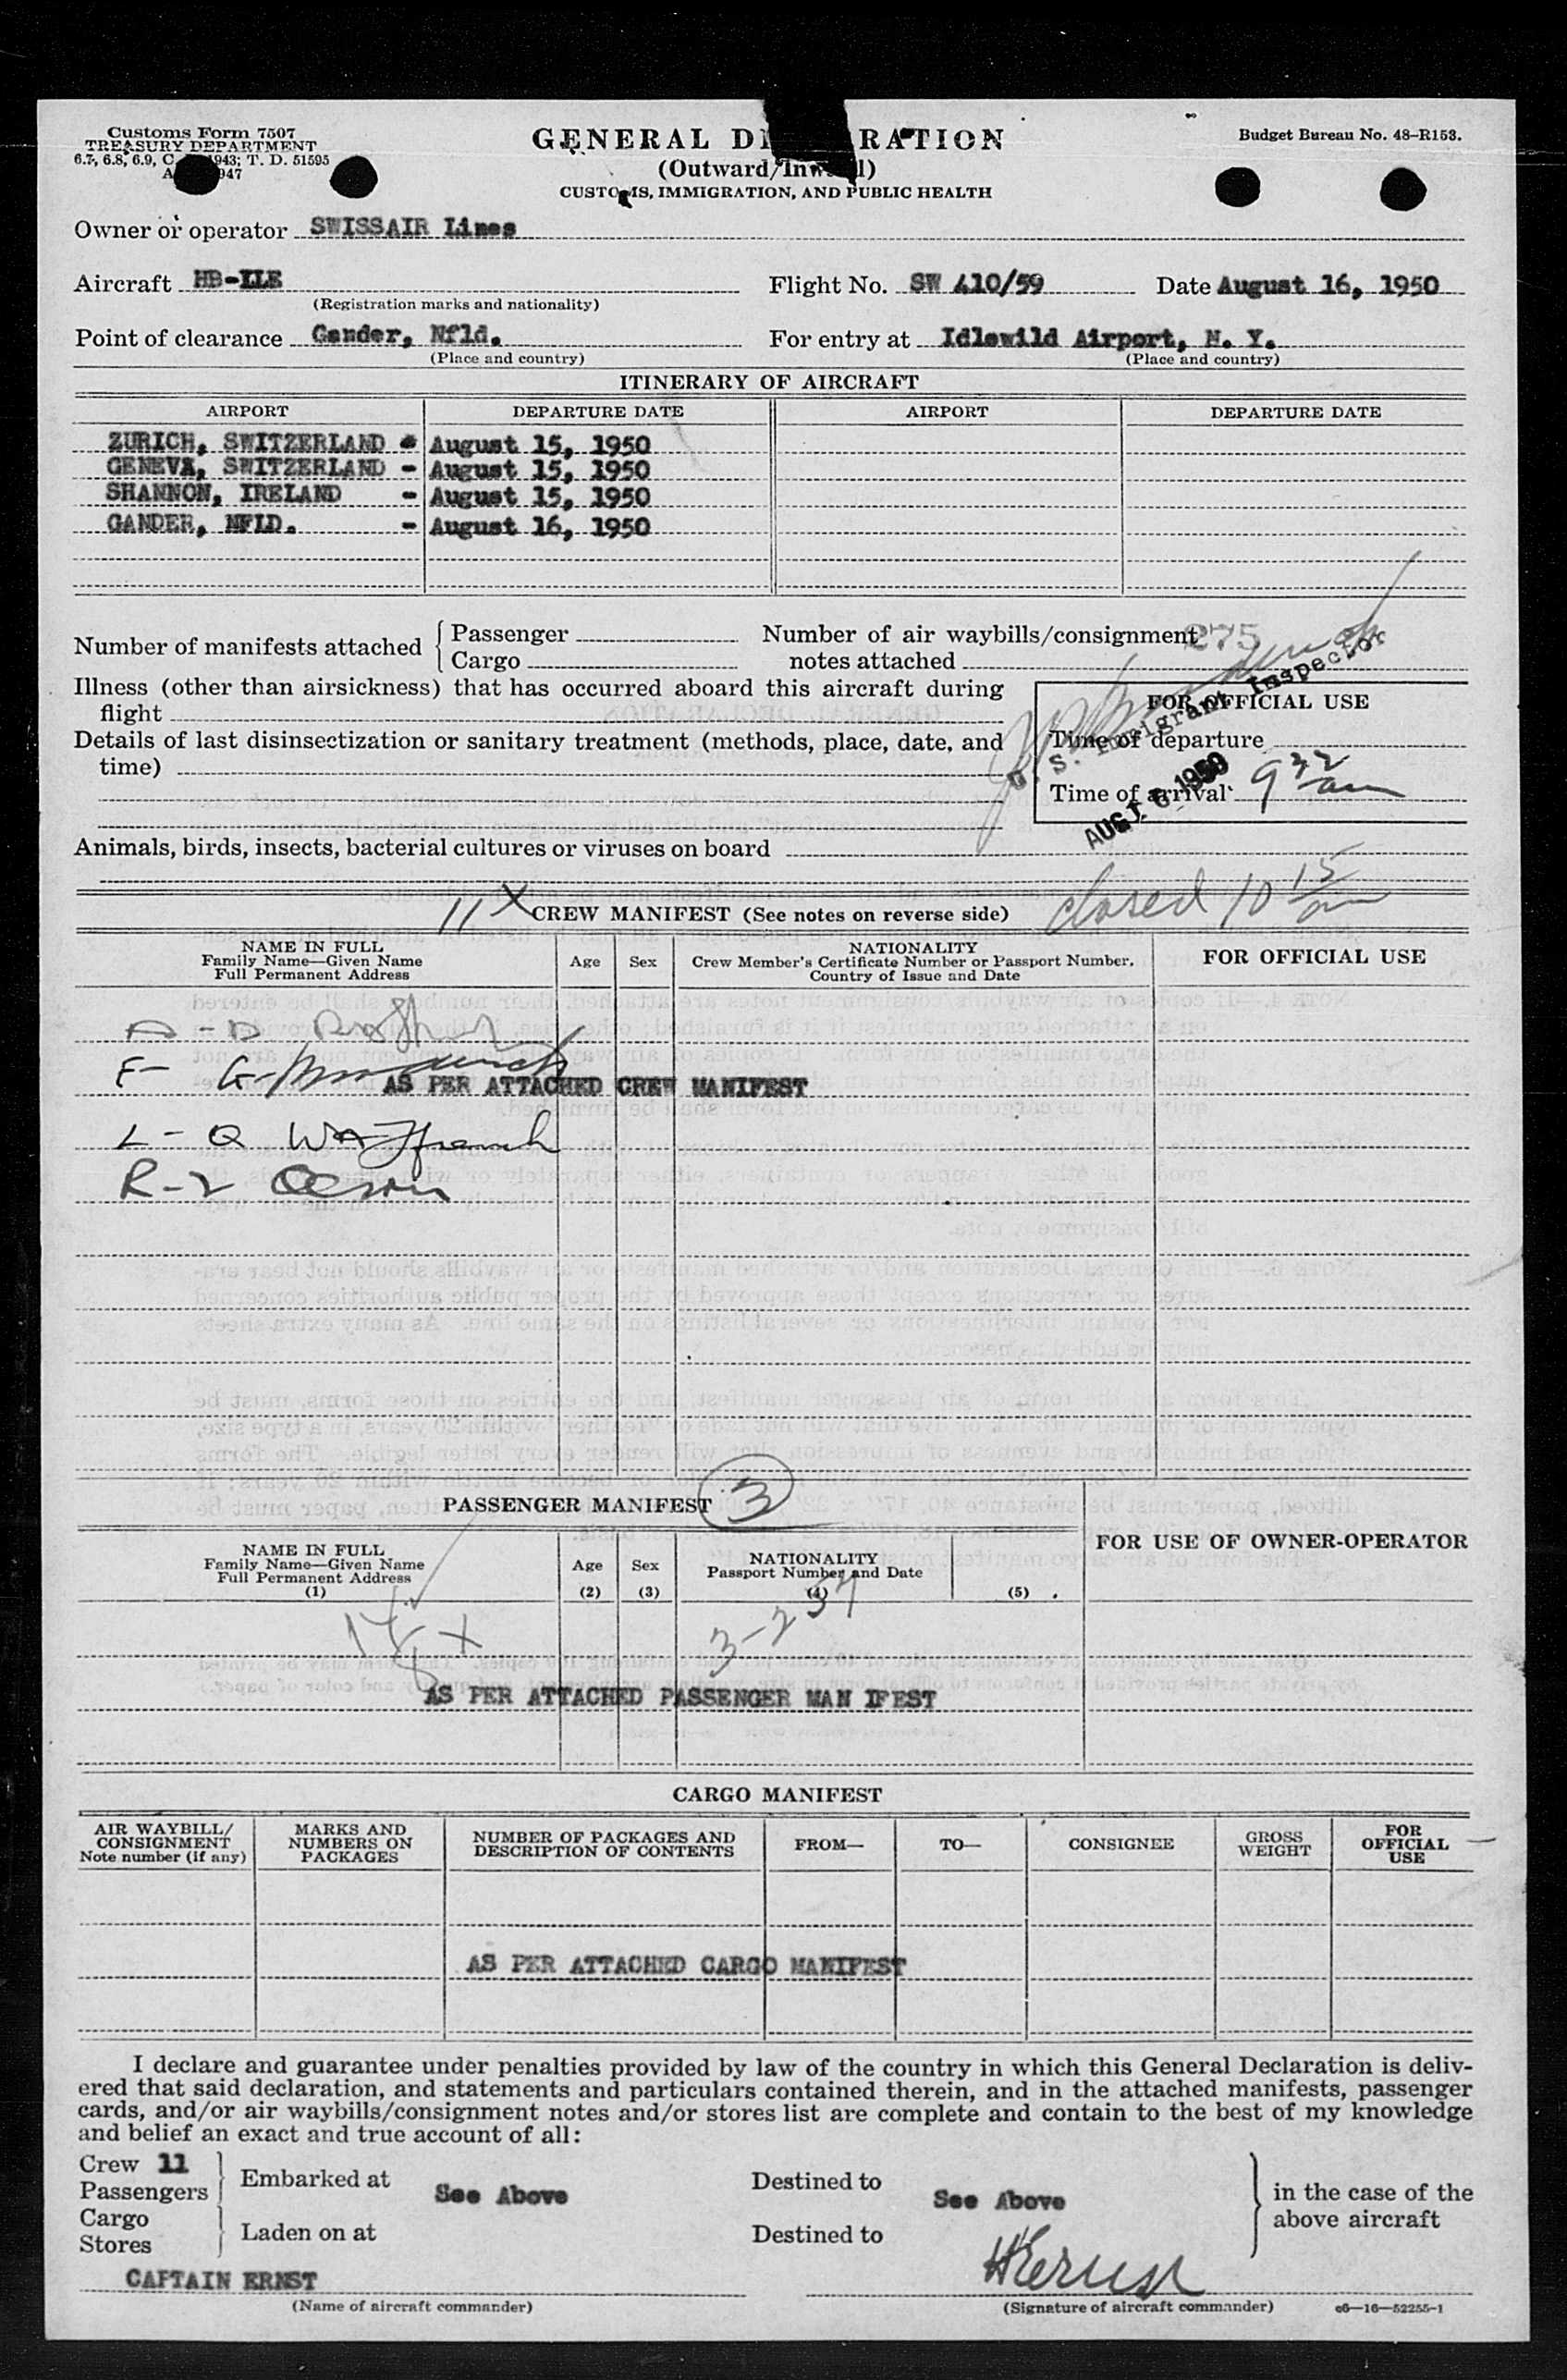 Customs Form 7507
TREASURY DEPARTMENT
6.7, 6.8, 6.9, C. 1943; T. D. 51595
947
Budget Bureau No. 48-R153.
GENERAL DE RATION
(Outward/Inward)
CUSTOMS, IMMIGRATION, AND PUBLIC HEALTH
Owner or operator SWISSAIR Lines
Aircraft HB-ILE Flight No. SW 410/59 Date August 16, 1950
(Registration marks and nationality)
Point of clearance Gander, Nfld. For entry at Idlewild Airport, N. Y.
(Place and country) (Place and country)
ITINERARY OF AIRCRAFT
AIRPORT DEPARTURE DATE AIRPORT DEPARTURE DATE
ZURICH, SWITZERLAND - August 15, 1950
GENEVA, SWITZERLAND - August 15, 1950
SHANNON, IRELAND - August 15, 1950
GANDER, NFLD. - August 16, 1950
Number of manifests attached { Passenger
Cargo
Number of air waybills/consignment 275
notes attached
Illness (other than airsickness) that has occurred aboard this aircraft during
flight
Details of last disinsectization or sanitary treatment (methods, place, date, and
time)
FOR OFFICIAL USE
U. S. Immigrant Inspector
Time of departure
Time of arrival 9 32 am
AUG 16 1950
Animals, birds, insects, bacterial cultures or viruses on board
closed 10 15 am
11 X CREW MANIFEST (See notes on reverse side)
NAME IN FULL
Family Name—Given Name
Full Permanent Address
Age Sex
NATIONALITY
Crew Member's Certificate Number or Passport Number,
Country of Issue and Date
FOR OFFICIAL USE
A - D
E - G
AS PER ATTACHED CREW MANIFEST
L - Q
R - Z Olson
PASSENGER MANIFEST 3
FOR USE OF OWNER-OPERATOR
NAME IN FULL
Family Name—Given Name
Full Permanent Address
(1)
Age
(2)
Sex
(3)
NATIONALITY
Passport Number and Date
(4)
(5)
3-257
AS PER ATTACHED PASSENGER MAN IFEST
CARGO MANIFEST
AIR WAYBILL/
CONSIGNMENT
Note number (if any)
MARKS AND
NUMBERS ON
PACKAGES
NUMBER OF PACKAGES AND
DESCRIPTION OF CONTENTS
FROM—
TO—
CONSIGNEE
GROSS
WEIGHT
FOR
OFFICIAL
USE
AS PER ATTACHED CARGO MANIFEST
I declare and guarantee under penalties provided by law of the country in which this General Declaration is deliv-
ered that said declaration, and statements and particulars contained therein, and in the attached manifests, passenger
cards, and/or air waybills/consignment notes and/or stores list are complete and contain to the best of my knowledge
and belief an exact and true account of all:
Crew 11
Passengers
Cargo
Stores
Embarked at See Above
Laden on at
Destined to See Above
Destined to
in the case of the
above aircraft
CAPTAIN ERNST
(Name of aircraft commander)
HErnst
(Signature of aircraft commander) c6—16—52255-1